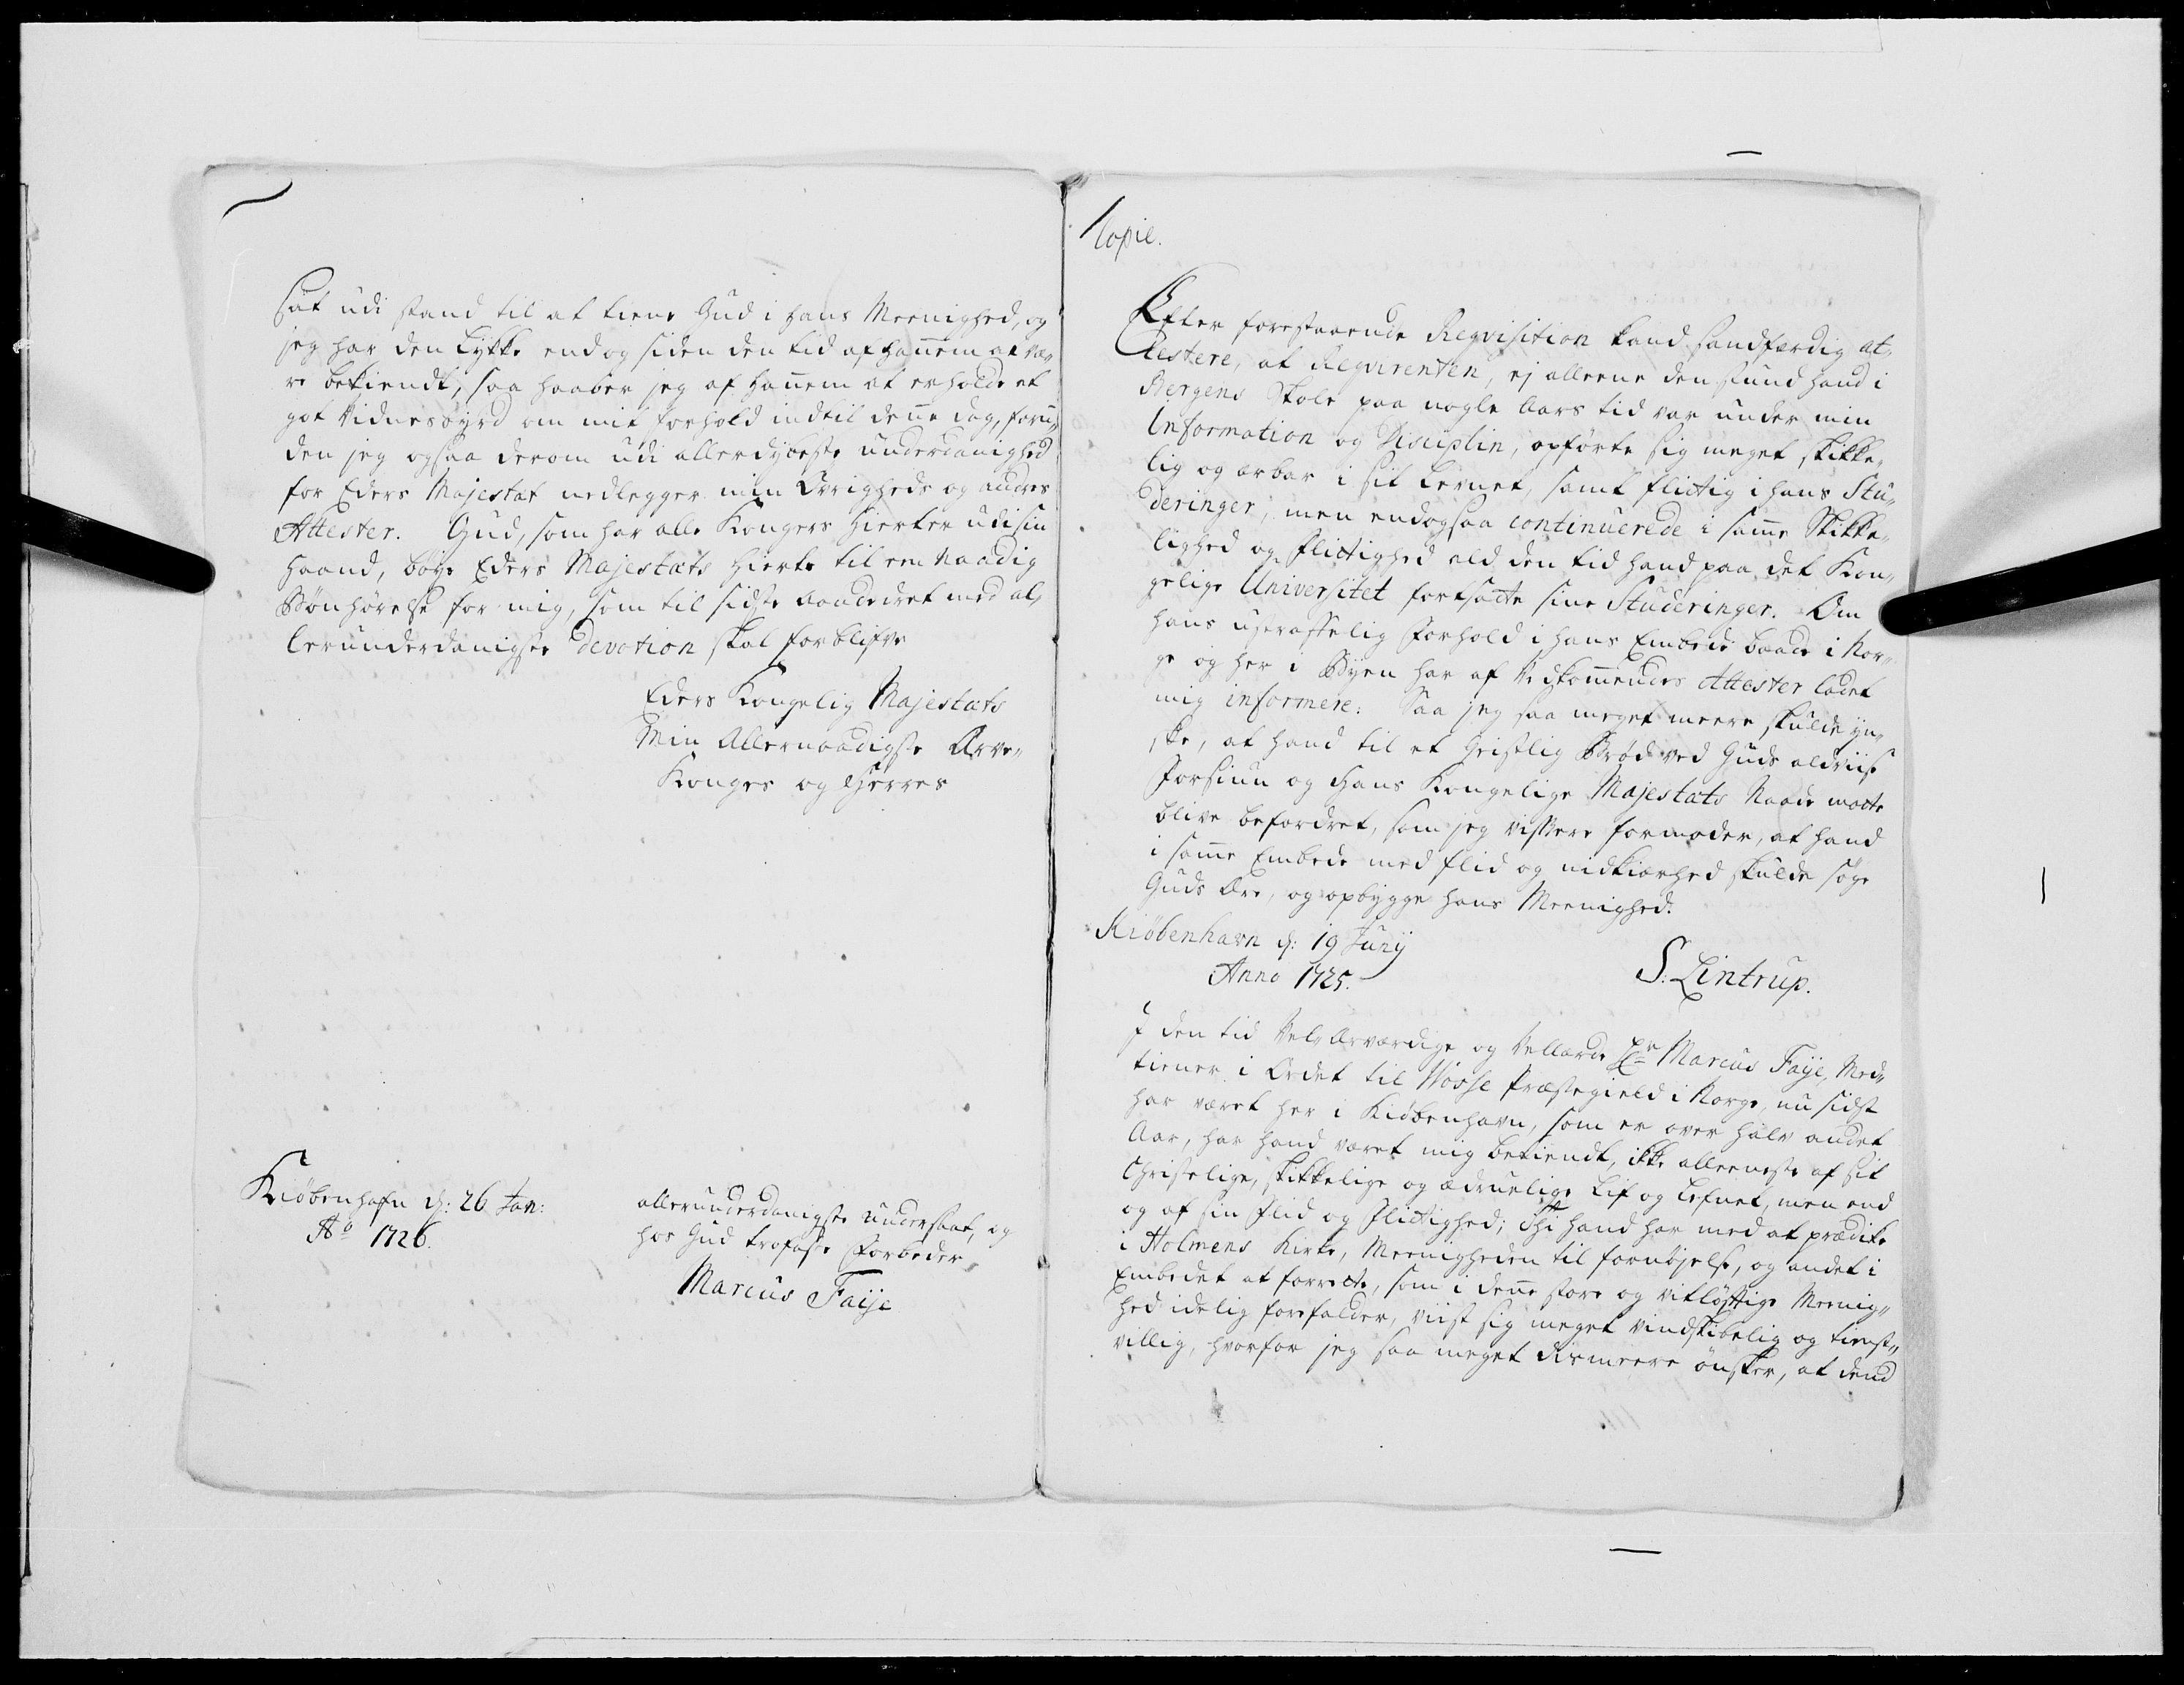 sat udi stand til at tiene Gud i hans Meenighed, og
jeg har den Lykke end og siden den tid af hannem at væ¬
re bekiendt, saa haaber jeg af hannem at erholde et
got Vidnesbyrd om mit forhold indtil denne dag, foru¬
den jeg ogsaa derom udi allerdybeste underdanighed
for Eders Majestæt nedlegger min Øvrigheds og andres
Attester. Gud, som har alle Kongers Hierter udi sin
Haand, böye Eders Majestæts Hierte til en Naadig
Bønhørelse for mig, som til sidste Aandedret med al¬
lerunderdanigste devotion skal forblifve
Eders Kongelig Majestæts
Min Allernaadigste Arve¬
Konges og Herres
Kiøbenhafn d: 26 Jan:
Aº 1726.
allerunderdanigste undersaat, og
hos Gud trofaste Forbeder
Marcus Faije
Copie.
Efter forestaaende Reqvisition kand sandfærdig at¬
testere, at Reqvirenten, ej alleene den stund hand i
Bergens Skole paa nogle Aars tid var under min
Information og Disciplin, opførte sig meget skikke¬
lig og ærbar i sit Levnet, samt flictig i hans Stu¬
deringer; men endogsaa continuerede i samme Skikke¬
lighed og flictighed ald den tid hand paa det Kon¬
gelige Universitet fortsatte sine Studeringer. Om
hans ustraffelig Forhold i hans Embede baade i Nor¬
ge og her i Byen har af Vedkommendes Attester ladet
mig informere: Saa jeg saa meget meere skulde yn¬
ske, at hand til et Geistlig Brød ved Guds alviise
Forsiun og Hans Kongelige Majestæts Naade maatte
blive befordret, som jeg vissere formoder, at hand
i samme Embede med flid og nidkiærhed skulde søge
Guds Ære, og opbygge hans Meenighed.
Kiöbenhavn d: 19 Junij
Anno 1725.
S: Lintrup.
I den tid Vel Ærværdige og Vellærde Hr Marcus Faije, Med¬
tiener i Ordet til Wosse Præstegield i Norge, nu sidst
har været her i Kiøbenhavn, som er over halv andet
Aar, har hand været mig bekiendt, ikke alleeneste af sit
Christelige, skikkelige og ædruelige Lif og Lefnet, men end
og af sin Flid og Flictighed; Thi hand har med at prædike
i Holmens Kirke, Meenigheden til fornöjelse, og andet i
Embedet at forrette, som i denne store og vitløftige Meenig¬
hed idelig forefalder, viist sig meget vindskibelig og tienst¬
villig, hvorfor jeg saa meget dismeere ønsker, at dend